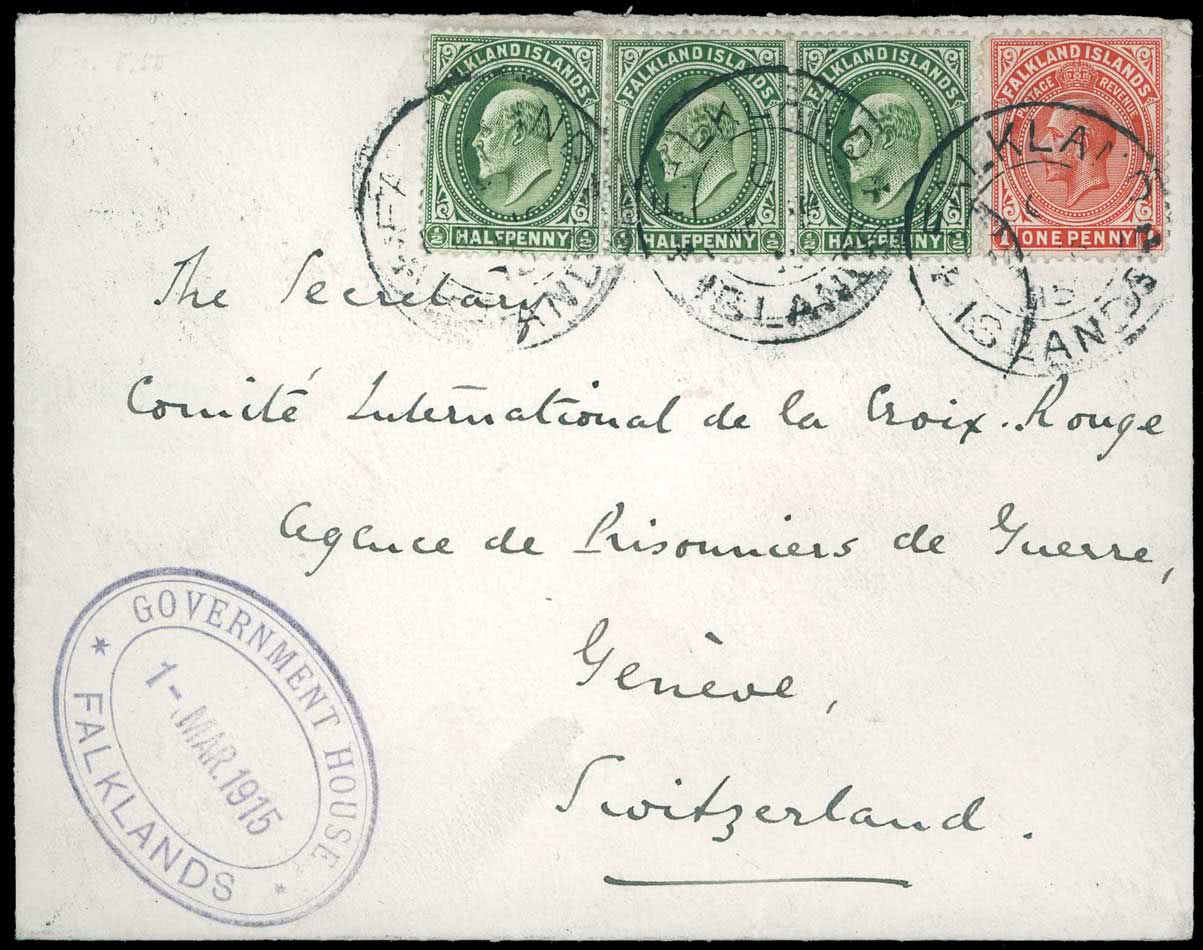 FALKLAND ISLANDS
HALFPENNY
½ ½
FALKLAND ISLANDS
HALFPENNY
½ ½
FALKLAND ISLANDS
HALFPENNY
½ ½
FALKLAND ISLANDS
POSTAGE REVENUE
1 ONE PENNY
FALKLAND
ISLANDS
FALKLAND
ISLANDS
FALKLAND
15
ISLANDS
The Secretary
Comité International de la Croix-Rouge
Agence de Prisonniers de Guerre,
Genève,
Switzerland.
GOVERNMENT HOUSE
1-.MAR.1915
FALKLANDS